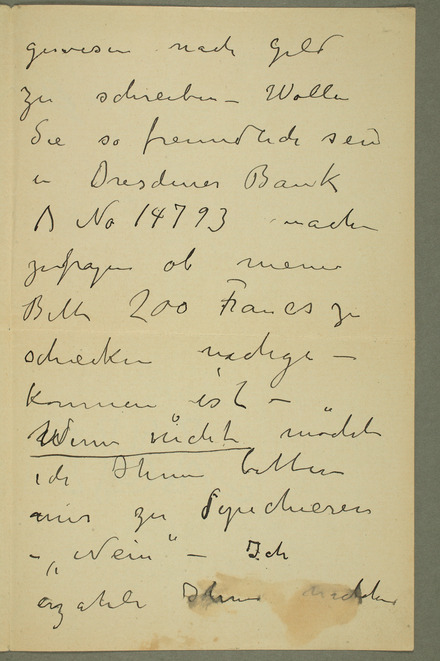 gewesen nach Geld
zu schreiben – Wollen
Sie so freundlich sein
in Dresdener Bank
A No 14793 nach
zufragen ob meine
Bitte 200 Francs zu
schicken nachge –
kommen ist –
Wenn nicht möcht
ich Ihnen bitten
mir zu
– „Nein“ – Ich
erzähle Ihnen nachher